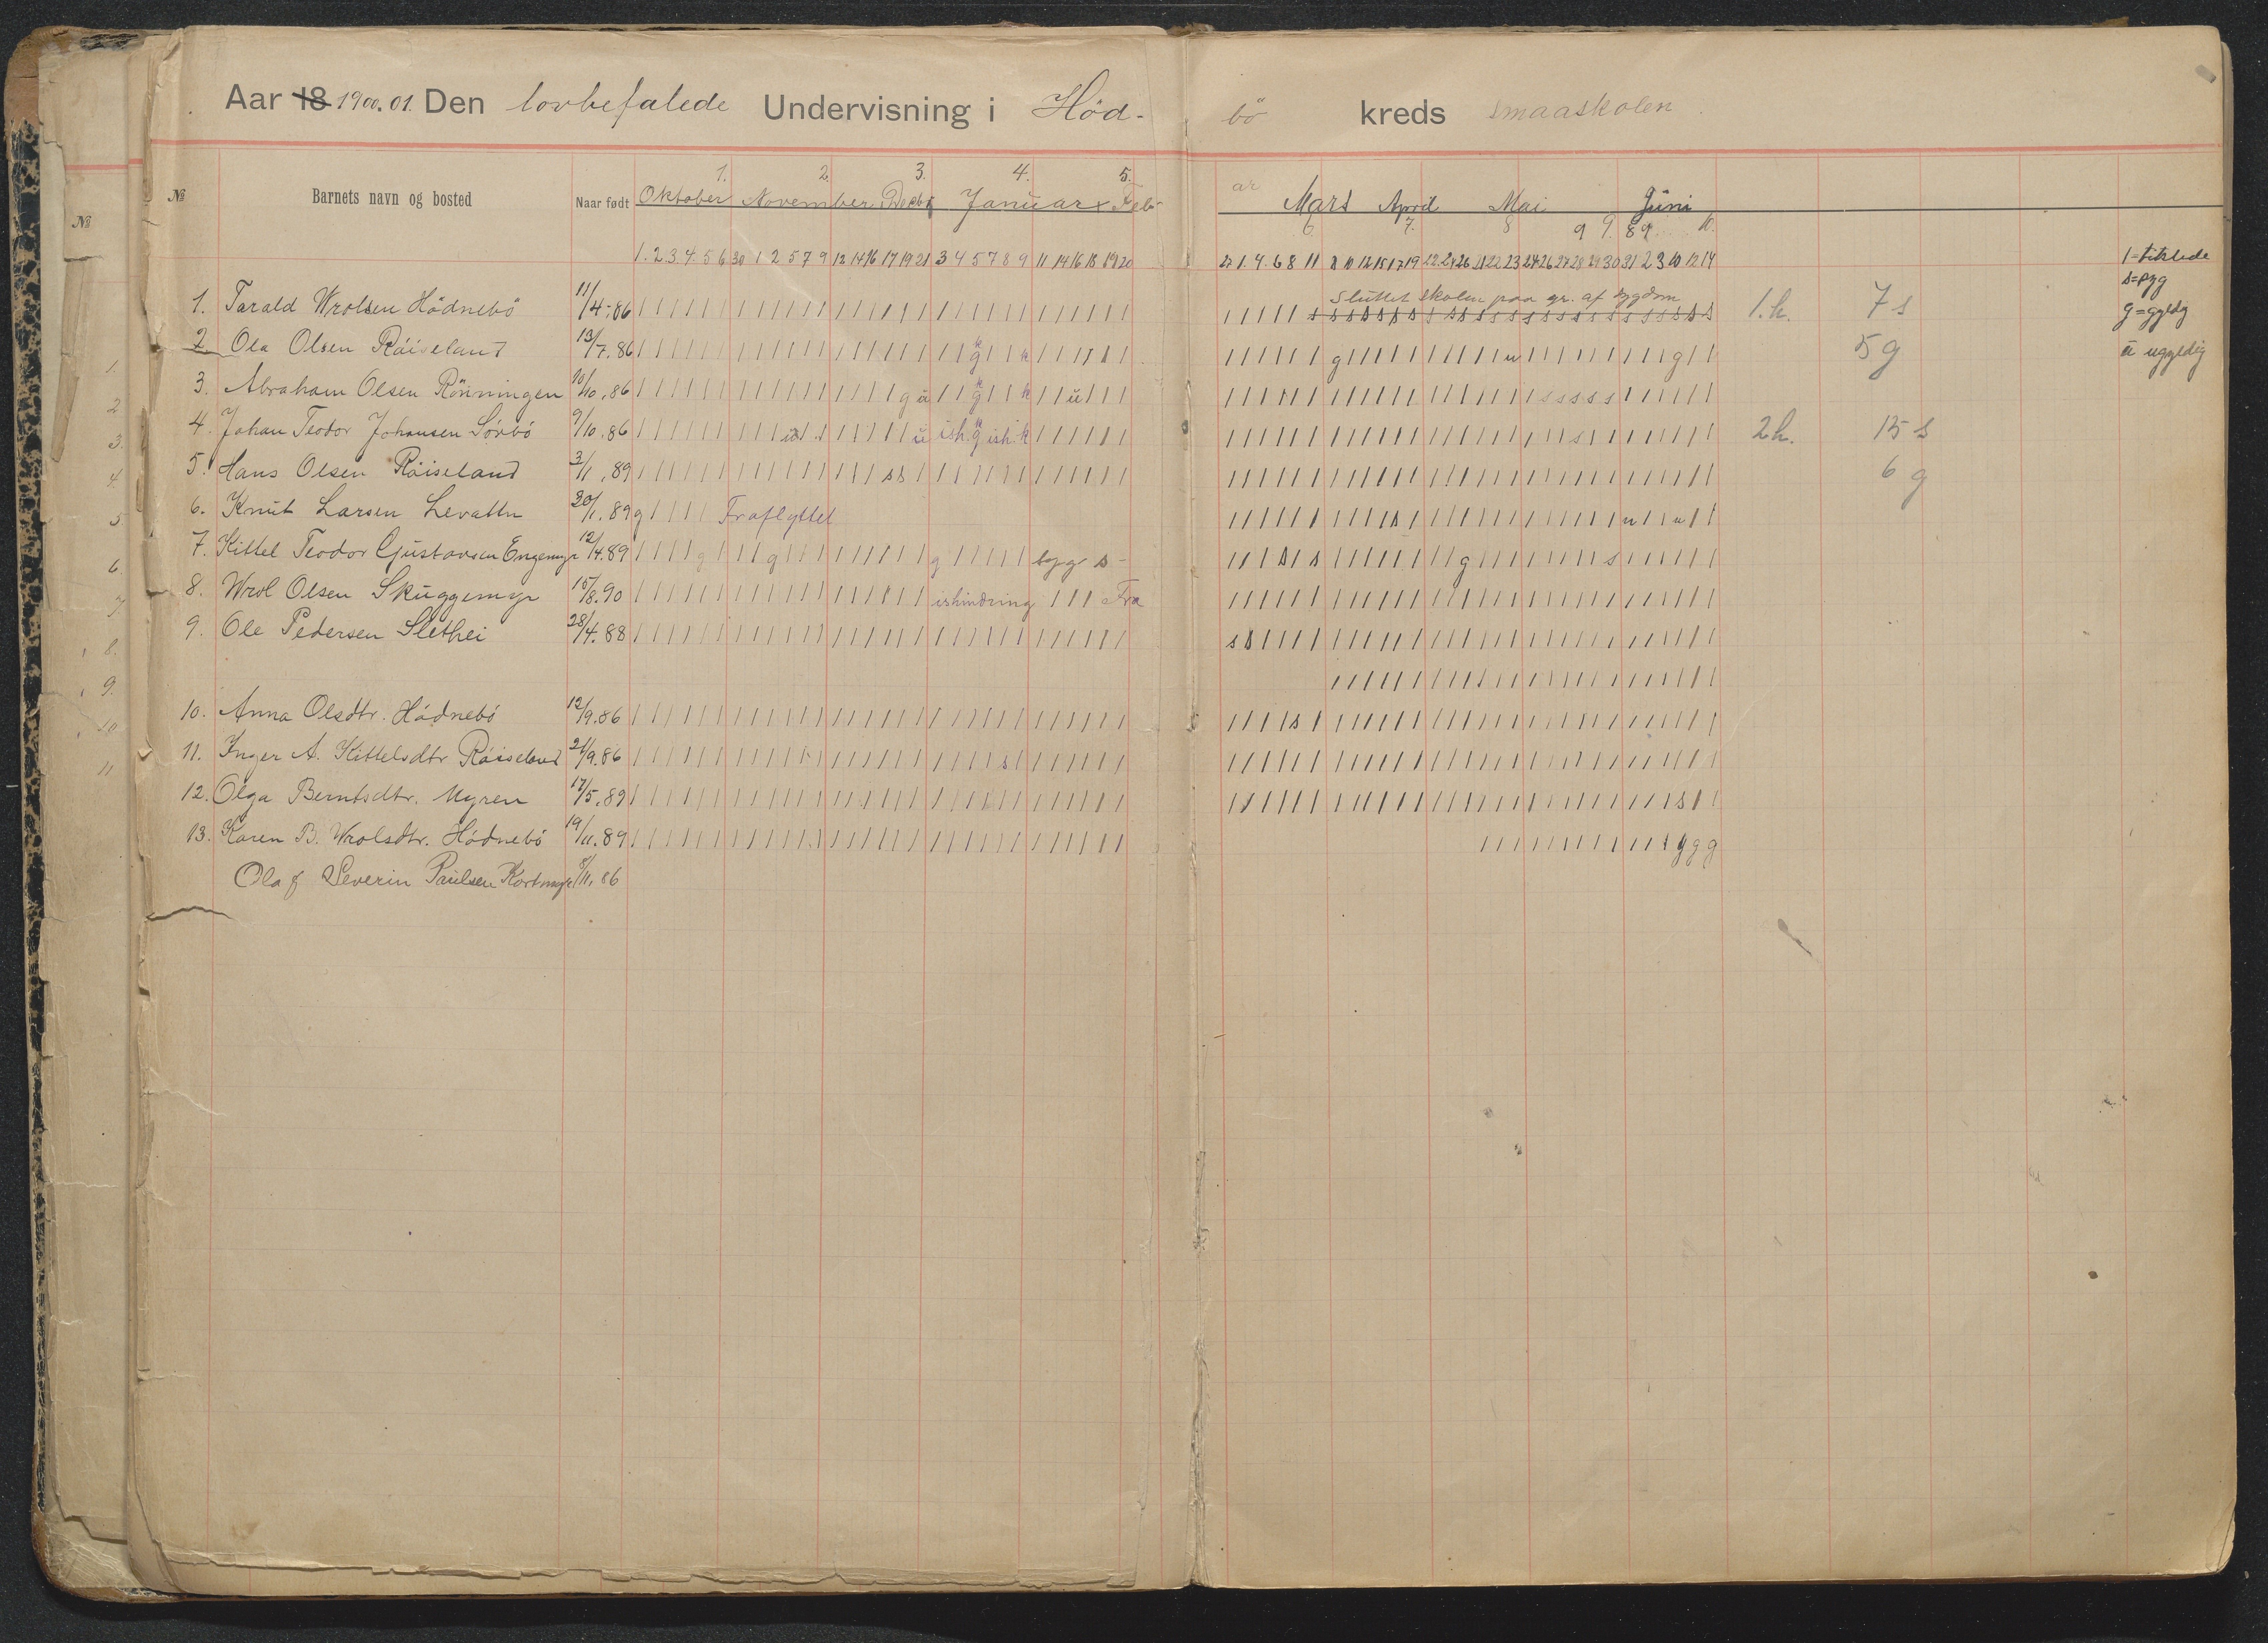 Aar 18 1900.01. Den lovbefalede Undervisning i Höd- bö kreds smaaskolen
1. 2. 3. 4. 5.
№ Barnets navn og bosted Naar født Oktober November Decbr Januar Feb- ar Mars April Mai Juni
6. 7. 8 9 9. 89 10.
1. 2. 3. 4. 5 6 30 1 2 5 7 9 12 14 16 17 19 21 3 4 5 7 8 9 11 14 16 18 19 20 27 1. 4. 6 8 11 8 10 12 15 17 19 22 24 26 21 22 23 24 26 27 28 29 30 31 2 3 10 12 14
1 = tilstede
s = syg
g = gyldig
ü ugyldig
Sluttet skolen paa gr. af sygdom
1. Tarald Wrolsen Hödnebö 11/4-86 1.h. 7 s
2 Ola Olsen Röiseland 13/7.86 5 g
3. Abraham Olsen Rönningen 10/10.86
4. Johan Teodor Johansen Sörbö 9/10.86 ish. g ish. k 2h. 15 s
5. Hans Olsen Röiseland 3/1.89 ss 6 g
6. Knut Larsen Levattn 30/1.89 g Fraflyttet
7. Kittel Teodor Gjustavsen Engemyr 12/4.89 syg s -
8. Wrol Olsen Skuggemyr 15/8.90 ishindring Fra
9. Ole Pedersen Slethei 28/4.88
10. Anna Olsdtr. Hödnebö 12/9.86
11. Inger A. Kittelsdtr Röiseland 21/9.86
12. Olga Berntsdtr. Myren 17/5.89
13. Karen B. Wrolsdtr. Hödnebö 19/11.89 g g g
Olaf Severin Paulsen Kortmyr 8/11.86